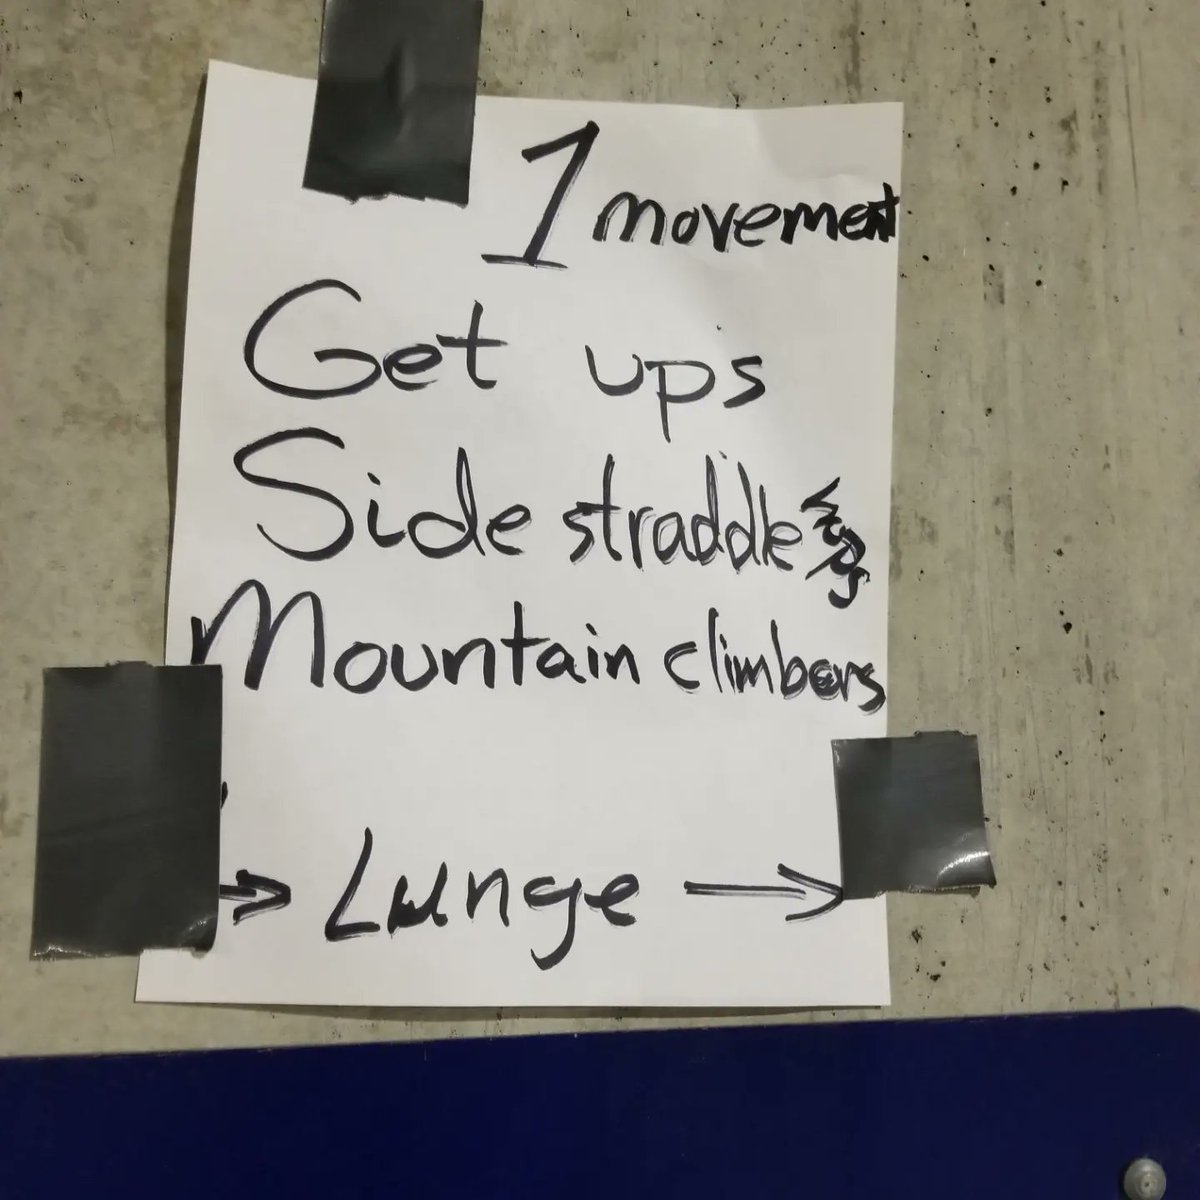 1 movement
Get ups
Side straddle hops
Mountain climbers
→ Lunge →